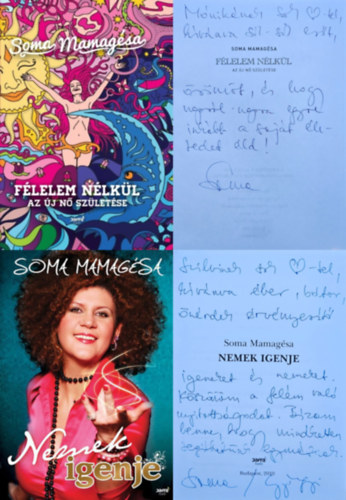 Soma Mamagésa
FÉLELEM NÉLKÜL
AZ ÚJ NŐ SZÜLETÉSE
Mónikának sok ♡-tel,
kívánva
SOMA MAMAGÉSA
FÉLELEM NÉLKÜL
AZ ÚJ NŐ SZÜLETÉSE
örömöt, és hogy
napról-napra egyre
inkább a saját éle-
tedet éld!
Soma
SOMA MAMAGÉSA
Nemek
igenje
Szilviának sok ♡-tel,
kívánva éber, bátor,
önérvényesítő
Soma Mamagésa
NEMEK IGENJE
igeneket és nemeket.
Köszönöm a felém való
nyitottságodat. Bízom
benne, hogy mindketten
Budapest,
Soma